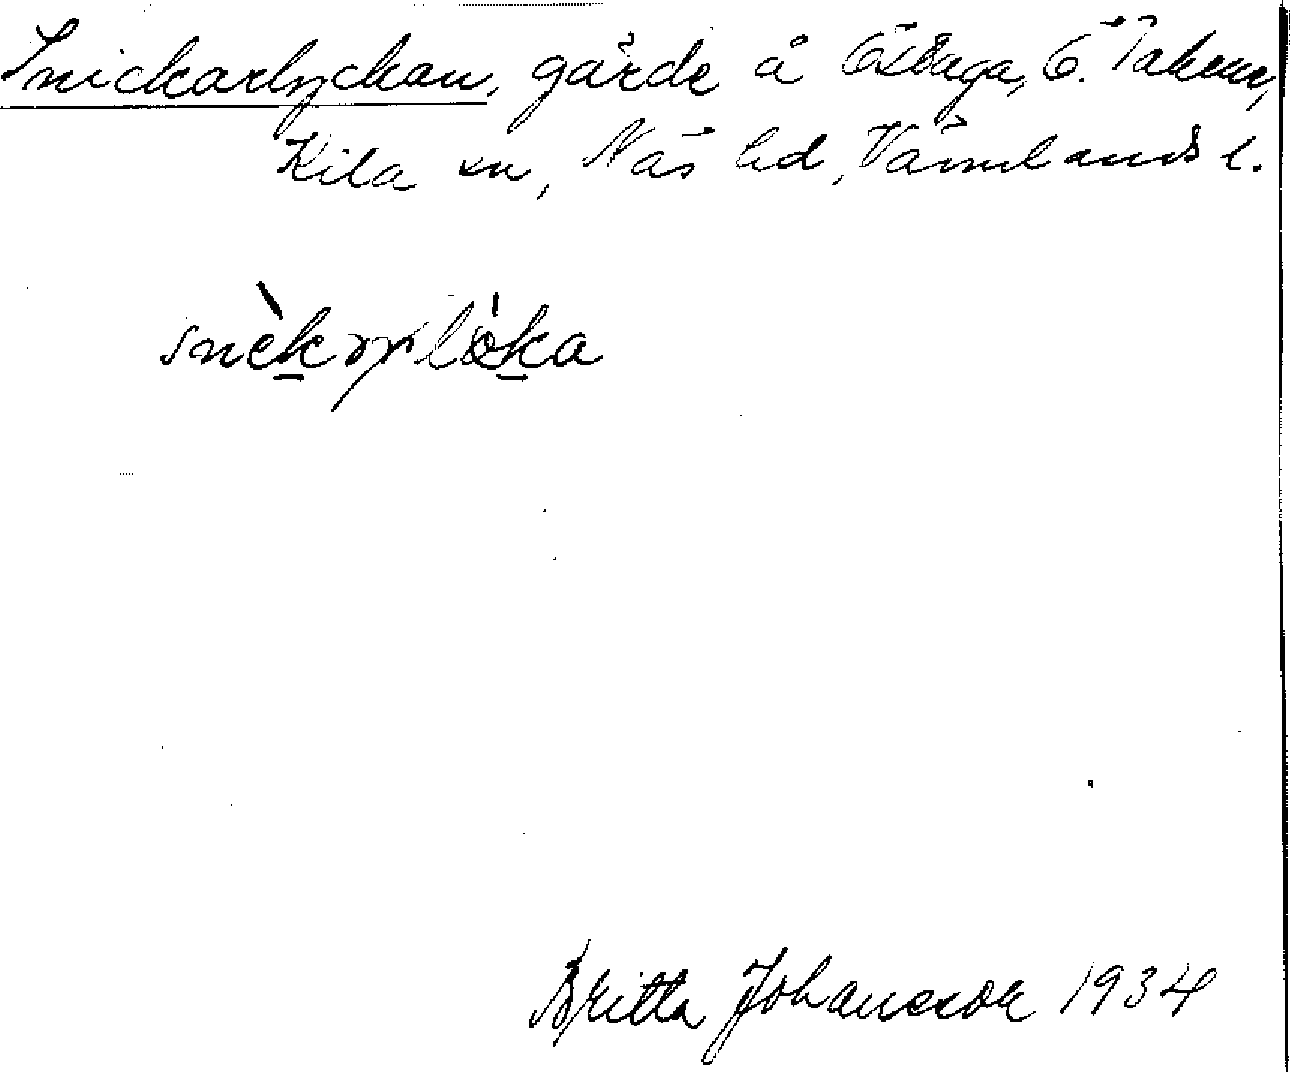 Snickarlyckan, gärde å Östbaga, Ö. Takene,
Kila sn, Näs hd, Värmlands l.
snèkɤrlo̍ka
Britta Johansson 1934